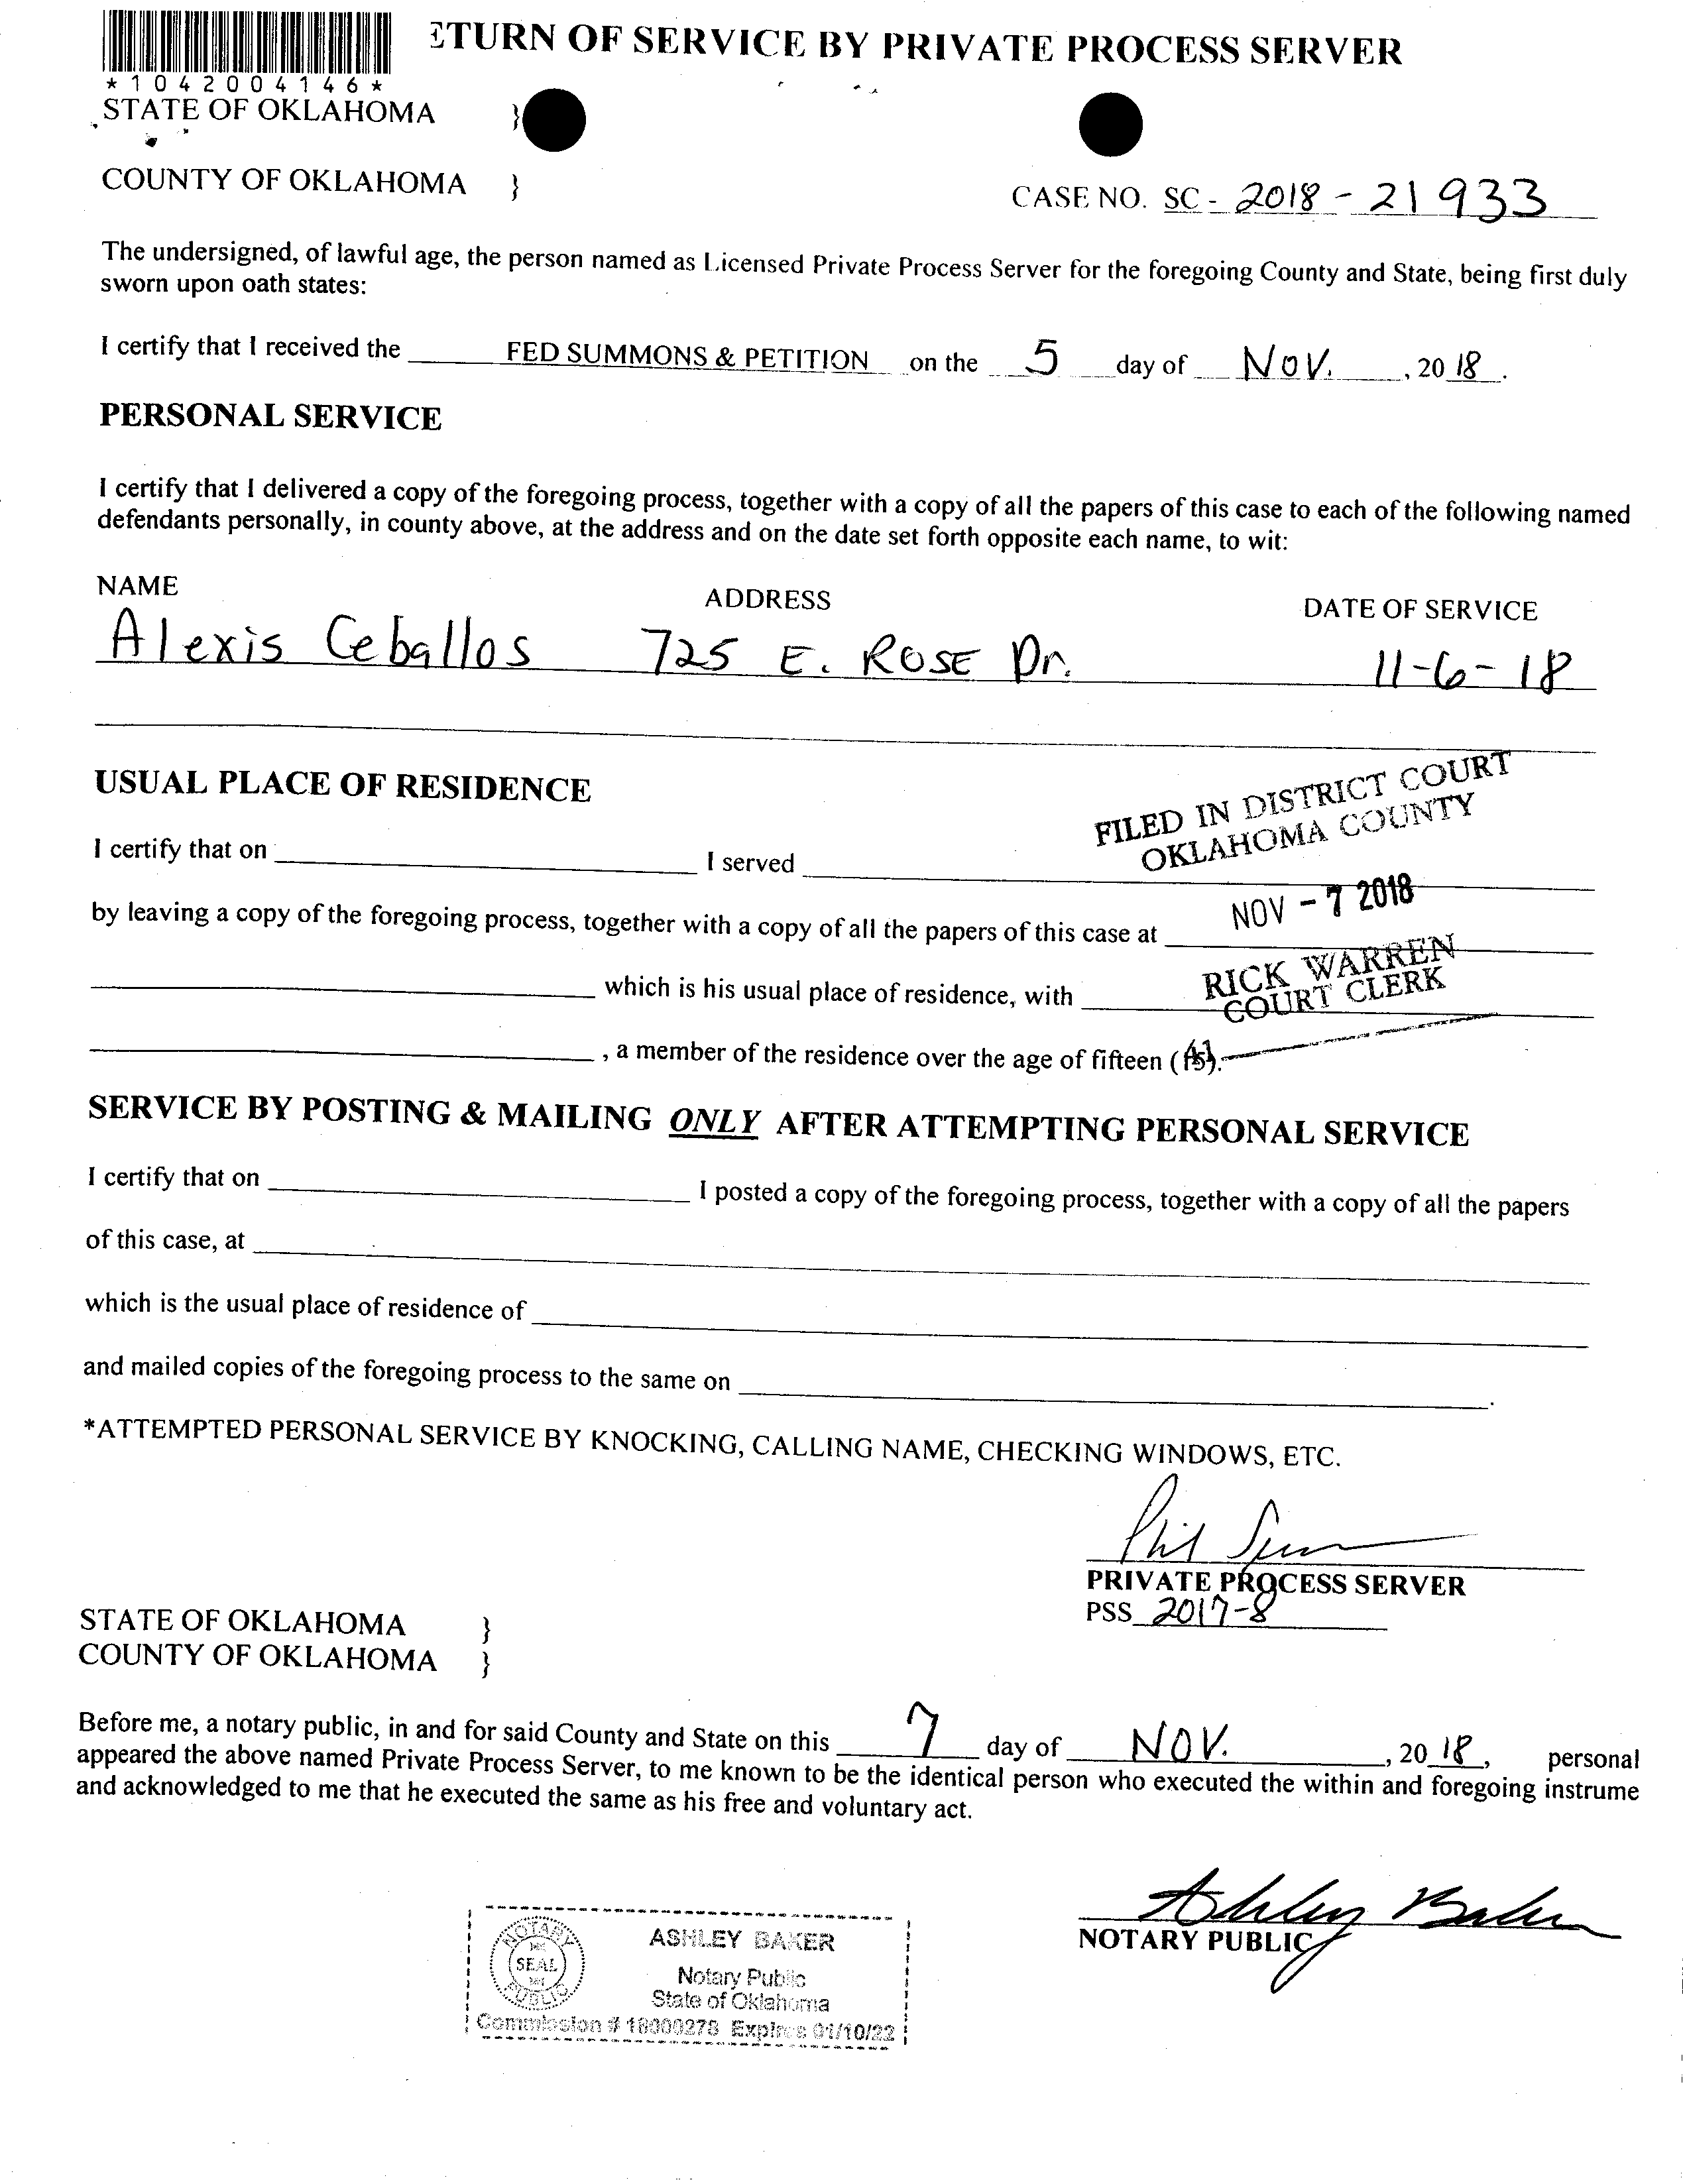 ETURN OF SERVICE BY PRIVATE PROCESS SERVER
*1042004146*
STATE OF OKLAHOMA }
COUNTY OF OKLAHOMA }
CASE NO. SC - 2018 - 21933
The undersigned, of lawful age, the person named as Licensed Private Process Server for the foregoing County and State, being first duly
sworn upon oath states:
I certify that I received the FED SUMMONS & PETITION on the 5 day of Nov. , 20 18 .
PERSONAL SERVICE
I certify that I delivered a copy of the foregoing process, together with a copy of all the papers of this case to each of the following named
defendants personally, in county above, at the address and on the date set forth opposite each name, to wit:
NAME ADDRESS DATE OF SERVICE
Alexis Ceballos 725 E. ROSE Dr. 11-6-18
USUAL PLACE OF RESIDENCE
FILED IN DISTRICT COURT
OKLAHOMA COUNTY
I certify that on I served
NOV - 7 2018
by leaving a copy of the foregoing process, together with a copy of all the papers of this case at
RICK WARREN
COURT CLERK
which is his usual place of residence, with
, a member of the residence over the age of fifteen (15).
SERVICE BY POSTING & MAILING ONLY AFTER ATTEMPTING PERSONAL SERVICE
I certify that on I posted a copy of the foregoing process, together with a copy of all the papers
of this case, at
which is the usual place of residence of
and mailed copies of the foregoing process to the same on .
*ATTEMPTED PERSONAL SERVICE BY KNOCKING, CALLING NAME, CHECKING WINDOWS, ETC.
Phil
PRIVATE PROCESS SERVER
PSS 2017-8
STATE OF OKLAHOMA }
COUNTY OF OKLAHOMA }
Before me, a notary public, in and for said County and State on this 7 day of NOV. , 20 18, personal
appeared the above named Private Process Server, to me known to be the identical person who executed the within and foregoing instrume
and acknowledged to me that he executed the same as his free and voluntary act.
Ashley Baker
NOTARY PUBLIC
NOTARY PUBLIC
SEAL
ASHLEY BAKER
Notary Public
State of Oklahoma
Commission # 18000278 Expires 01/10/22